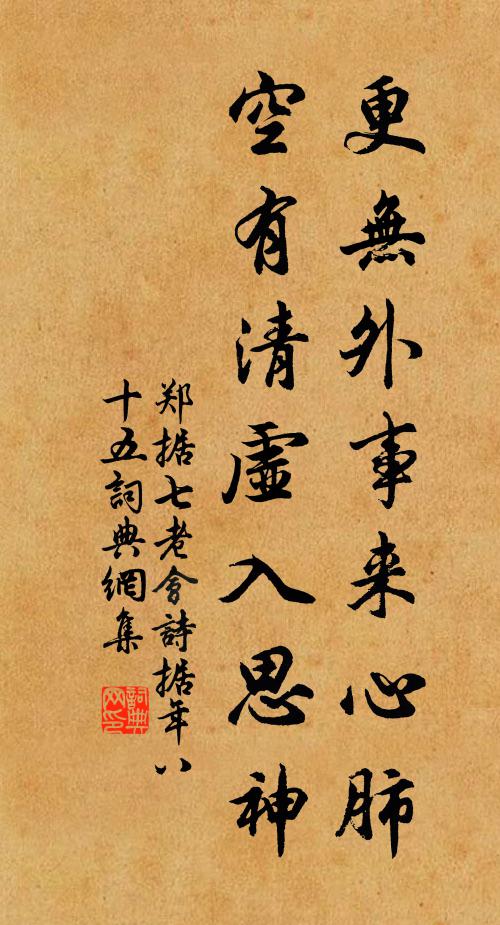 更無外事来心肺
空有清虛入思神
郑据七老會詩据年八
十五詞典網集
詞典网印